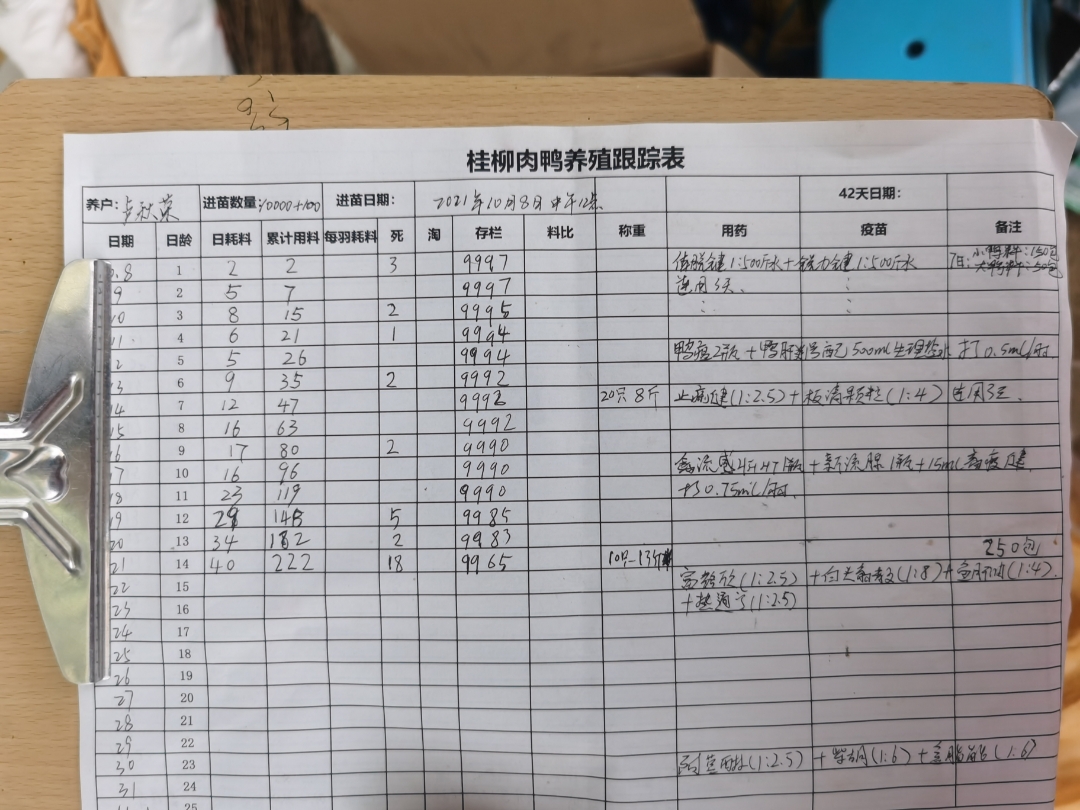 桂柳肉鸭养殖跟踪表
养户: 卢秋荣 进苗数量: 10000+100 进苗日期: 2021年10月8日中午12点 42天日期:
日期 日龄 日耗料 累计用料 每羽耗料 死 淘 存栏 料比 称重 用药 疫苗 备注
.8 1 2 2 3 9997 1:500斤水+ 1:500斤水 7日: 小鸭料:150包
大鸭料:50包
9 2 5 7 9997 连用3天.
10 3 8 15 2 9995
11 4 6 21 1 9994
2 5 5 26 9994 鸭瘟2瓶+鸭肝 500mL生理盐水 打0.5mL/羽.
13 6 9 35 2 9992
14 7 12 47 9992 20只8斤 (1:2.5)+板清颗粒(1:4) 连用3天.
15 8 16 63 9992
16 9 17 80 2 9990
17 10 16 96 9990 禽流感 1瓶+新流腺1瓶+15mL
18 11 23 119 9990 打0.75mL/羽.
19 12 29 148 5 9985
20 13 34 182 2 9983 250包
21 14 40 222 18 9965 10只=13斤
22 15 (1:2.5) + (1:8)+ (1:4).
23 16 + (1:2.5)
24 17
25 18
26 19
27 20
28 21
29 22
30 23 (1:2.5) +柴胡(1:6)+ (1:6)
31 24
25